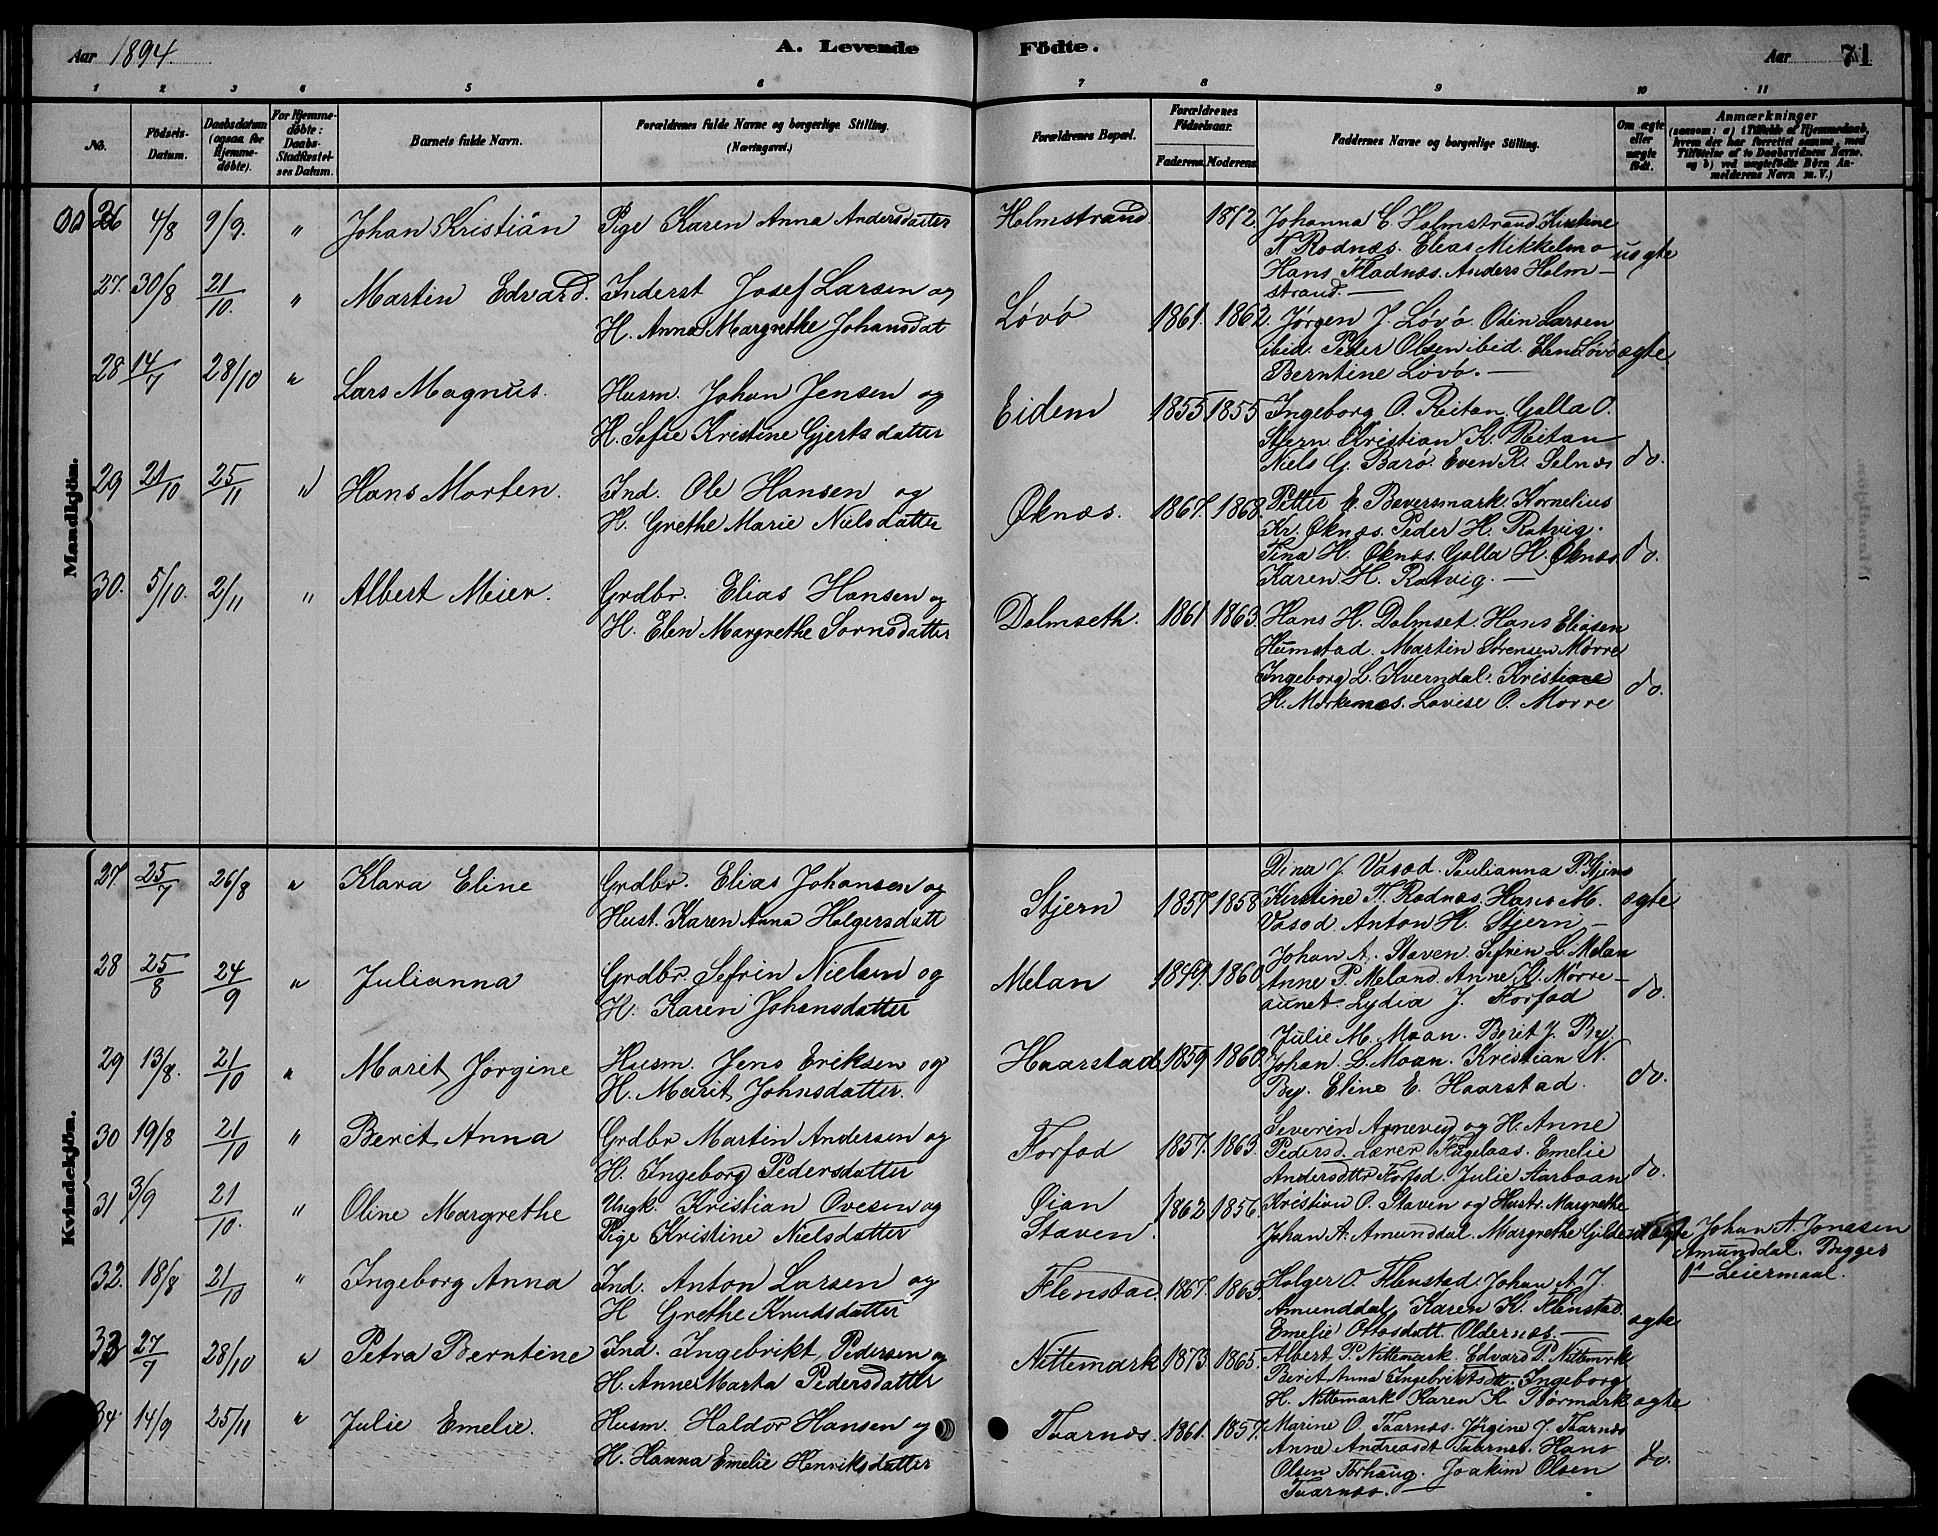 Aar 1894. A. Levende Födte. Aar 71
1 2 3 4 5 6 7 8 9 10 11
No. Födsels-Datum. Daabsdatum (ogsaa for Hjemmedøbte). For Hjemmedøbte: Daabs-Stadfæstelses Datum. Barnets fulde Navn. Forældrenes fulde Navne og borgerlige Stilling. (Næringsvei.) Forældrenes Bopæl. Forældrenes Fødselsaar. Faderens. Moderens. Faddernes Navne og borgerlige Stilling. Om ægte eller uægte født. Anmærkninger (saasom: a) i Tilfælde af Hjemmedaab, hvem der har forrettet samme, med Tilføielse af to Daabsvidners Navne, og b) ved uægtefødte Børn Anmelderens Navn m. V.)
Mandkjön.
26 4/8 9/9. " Johan Kristian Pige Karen Anna Andersdatter Holmstrand 1872. Johanna C Holmstrand Kirstine
F Rodnæs. Elias Mikkelm o uægte
Hans Fladnæs. Anders Holm-
strand. —
27. 30/8 21/10. " Martin Edvard. Inderst Josef Larsen og
H. Anne Margrethe Johansdat Løvø 1861. 1862. Jørgen J. Løvø. Odin Larsen
ibid. Peder Olsen ibid. Elen Løvø ægte
Berntine Løvø. —
28 14/7 28/10 " Lars Magnus. Husm. Johan Jensen og
H. Sofie Kristine Gjertsdatter Eidem 1855 1855 Ingeborg O. Reitan. Golla O.
Stjern. Kristian K. Reitan
Niels G. Barø. Even R. Selnæs do.
29 21/10 25/11 " Hans Morten. Ind. Ole Hansen og
H. Grethe Marie Nielsdatter Øknæs. 1867. 1868. Petter E. Bæversmark. Kornelius
Kr. Øknæs. Peder H. Ratvig.
Tina H. Øknæs. Golla H. Øknæs. do.
Karen H. Ratvig. —
30. 5/10. 2/11 " Albert Meier. Grdbr. Elias Hansen og
H. Elen Margrethe Sørnsdatter Dolmseth. 1861 1863. Hans H. Dolmset. Hans Eliasen
Humstad. Martin Sørensen Mørre
Ingeborg L. Kverndal. Kristiane
H. Mørkenæs. Lovise O. Mørre do.
Kvindekjön.
27. 25/7 26/8 " Klara Eline Grdbr. Elias Johansen og
Hust. Karen Anna Holgersdatt Stjern 1857. 1858 Dina J. Vasød. Paulianna P. Stjern
Kirstine F. Rodnæs. Hans M. ægte
Vasød. Anton H. Stjern —
28 25/8 24/9 " Julianna Grdbr. Sefrin Nielsen og
H. Karen Johansdatter Melan 1849. 1860 Johan A. Staven. Sefrin L. Melan
Anne P. Meland. Anne K. Mørre-
aunet. Lydia J. Forfod do.
29 13/8. 21/10 " Marit Jørgine Husm. Jens Eriksen og
H. Marit Johnsdatter. Haarstad 1859 1860. Julie M. Moan. Berit J. By
Johan L. Moan. Kristian N.
By. Eline E. Haarstad. do.
30 19/8 21/10 " Berit Anna Grdbr Martin Andersen og
H. Ingeborg Pedersdatter Forfod 1857. 1863. Severin Arnevig og H. Anne
Pedersd. Lærer Fugelaas. Emelie
Andersdttr Forfod. Julie Aarboan do.
31 3/9 21/10. " Oline Margrethe Ungk. Kristian Ovesen og
Pige Kristine Nielsdatter Øian
Staven. 1862 1856. Kristian O. Staven og Hustr. Margrethe
Johan A. Amundal. Margrethe Gilde uægte Johan A. Jonassen
Amunddal. Begges
1ste Leiermaal.
32. 18/8 21/10 " Ingeborg Anna Ind. Anton Larsen og
H Grethe Knudsdatter Flenstad. 1867. 1863. Holger O. Flenstad. Johan A. J.
Amunddal. Karen K. Flenstad.
Emelie Ottosdatt. Oldernæs. — ægte
33 27/9 28/10 " Petra Berntine Ind. Ingebrikt Pedersen og
H. Anne Marta Pedersdatter Nittemark 1873. 1865. Albert P. Nittemark. Edvard P. Nittemrk
Berit Anna Ingebriktsdtt. Ingeborg
H. Nittemark Karen K. Børmark ægte
34 14/9 25/11 " Julie Emelie. Husm. Haldor Hansen og
H. Hanna Emelie Henriksdatter Taarnæs. 1861. 1857. Marine O. Taarnæs. Jørgine J. Taarnæs
Anne Andreasdt Taarnæs. Hans
Olsen Torhaug. Joakim Olsen do.
Taarnæs. —